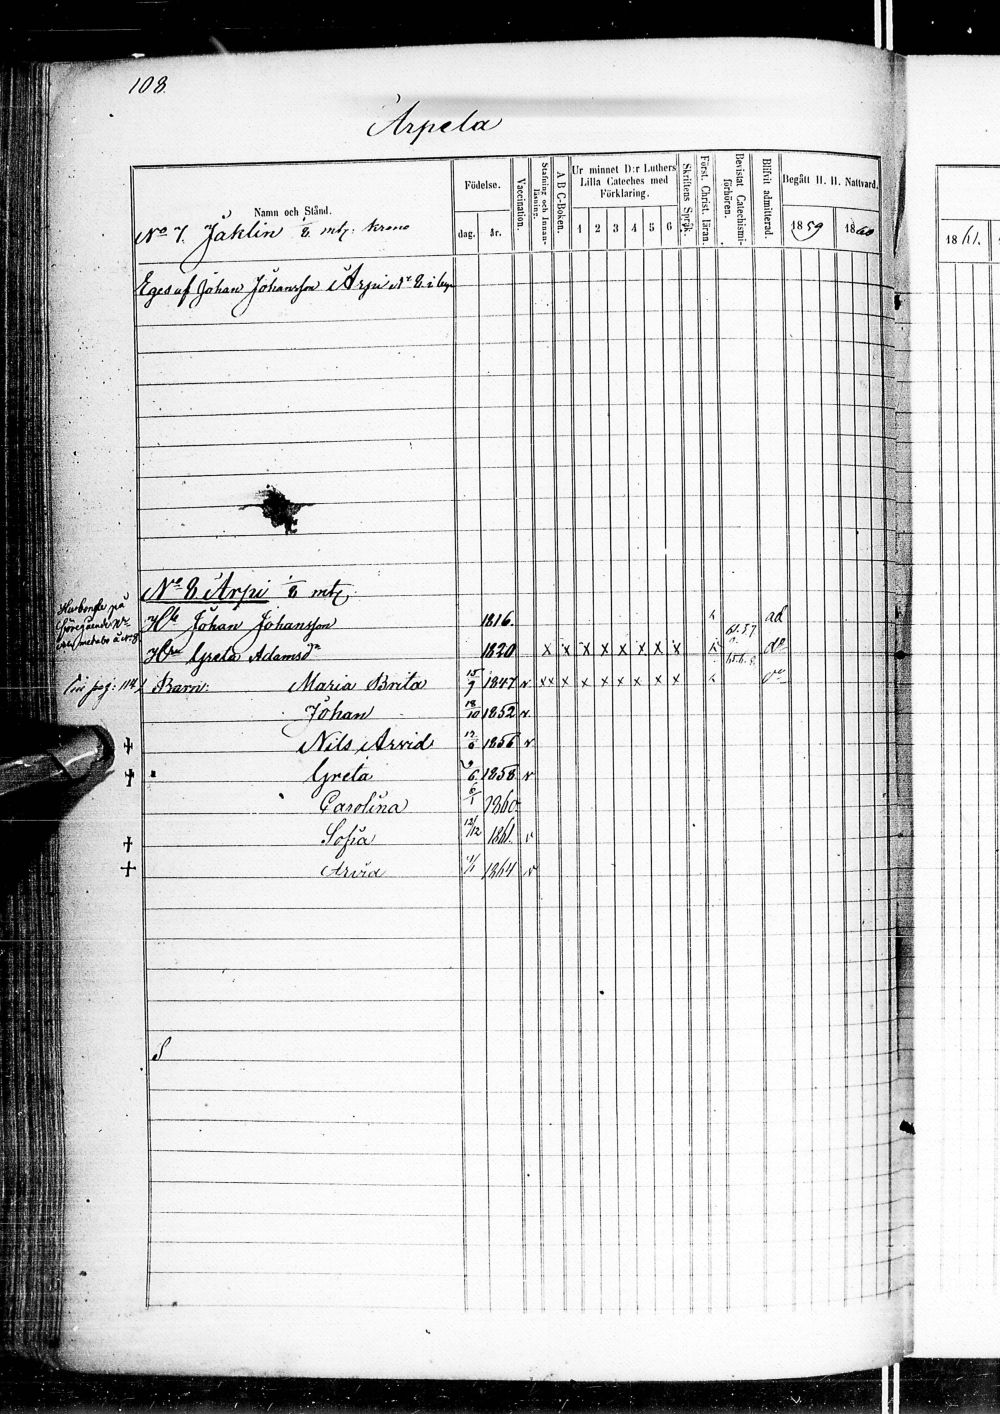 108.
Arpela
Namn och Stånd.
Födelse.
dag. år.
Vaccination.
Stafning och Innan-läsning.
A B C-Boken.
Ur minnet D:r Luthers
Lilla Cateches med
Förklaring.
1 2 3 4 5 6
Skriftens Språk.
Först. Christ. läran.
Bevistat Catechismi-förhören.
Blifvit admitterad.
Begått H. H. Nattvard.
1859 1860
1861.
No 7. Jäklin 1/8 mtl. Krono
Eges af Johan Johansson Arpi No 8 i byn
No 8 Arpi 1/8 mtl.
Husbonde på föregående No
Hb Johan Johansson 1816. ad
61.57
Hru Greta Adamsdr 1820 x x x x x x x x do
Barn: Maria Brita 15/9 1847 v x x x x x x x x x do
Johan 18/10 1852 v
+ Nils Arvid 1856 v
+ Greta 1858 v
Carolina 6/1 1860
+ Sofia 12/12 1861. v
+ Arvid 1864 v
S